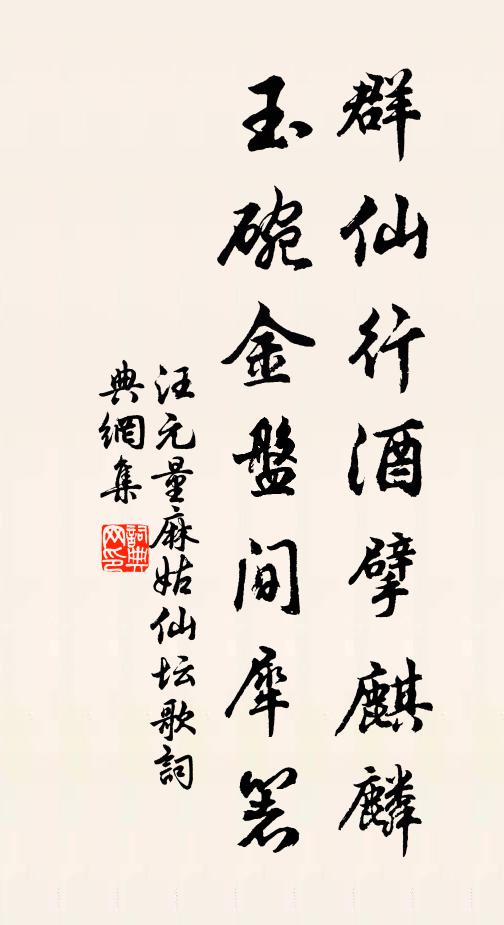 群仙行酒擘麒麟
玉碗金盤间犀箸
汪元量麻姑仙坛歌詞
典網集
詞典网印